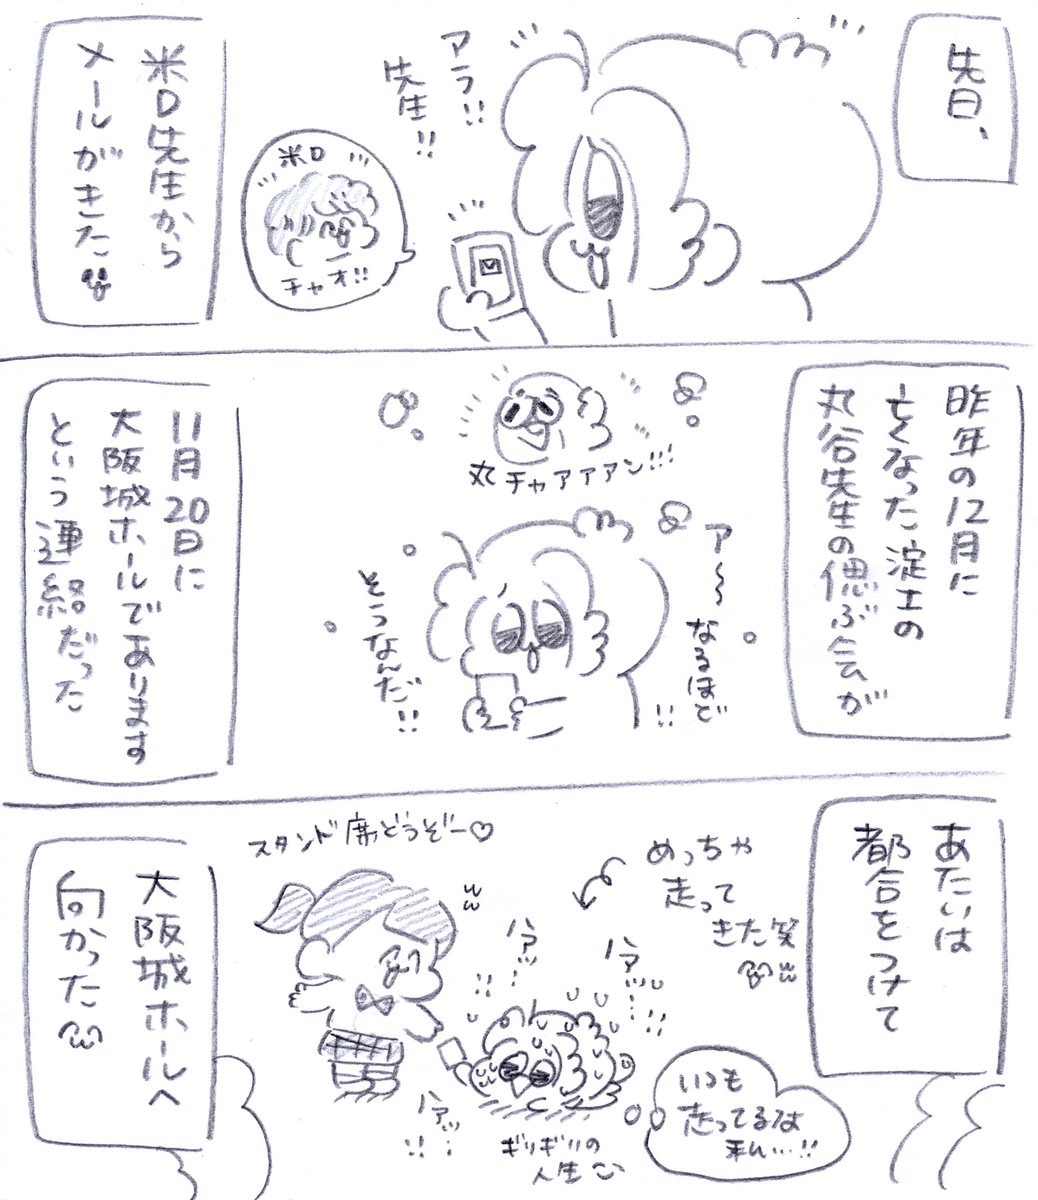 先日、
アラ!!
先生!!
米D
チャオ!!
米D先生から
メールがきた
昨年の12月に
亡くなった淀士の
丸谷先生の偲ぶ会が
丸チャァァァン!!!
ア〜〜
なるほど
!!
そうなんだ!!
11月20日に
大阪城ホールであります
という連絡だった
あたいは
都合をつけて
めっちゃ
走って
きた笑
スタンド席どうぞー♡
ハアッ
ハアッ
ハアッ
いつも
走ってるな
私…!!
ギリギリの
人生
大阪城ホールへ
向かった